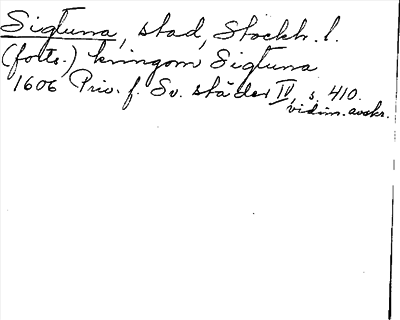 Sigtuna, stad, Stockh. l.
(forts.) kringom Sigtuna
1606 Priv. f. Sv. städer IV, s. 410.
vidim. avskr.